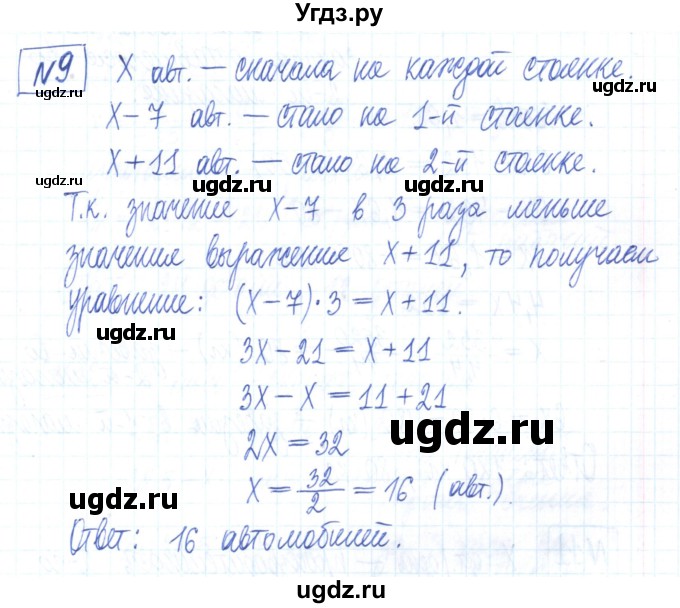 Угдз.ру
№9 X авт. — сначала на каждой стоянке.
ugdz.ru
X-7 авт. — стало на 1-й стоянке.
X+11 авт. — стало на 2-й стоянке.
ugdz.ru ugdz.ru ugdz.ru
Т.к. значение X-7 в 3 раза меньше
значения выражения X+11, то получаем
уравнение: (X-7)·3 = X+11.
ugdz.ru ugdz.ru
3X-21 = X+11
3X-X = 11+21
2X = 32
ugdz.ru
X = 32/2 = 16 (авт.)
ugdz.ru
Ответ: 16 автомобилей.
ugdz.ru